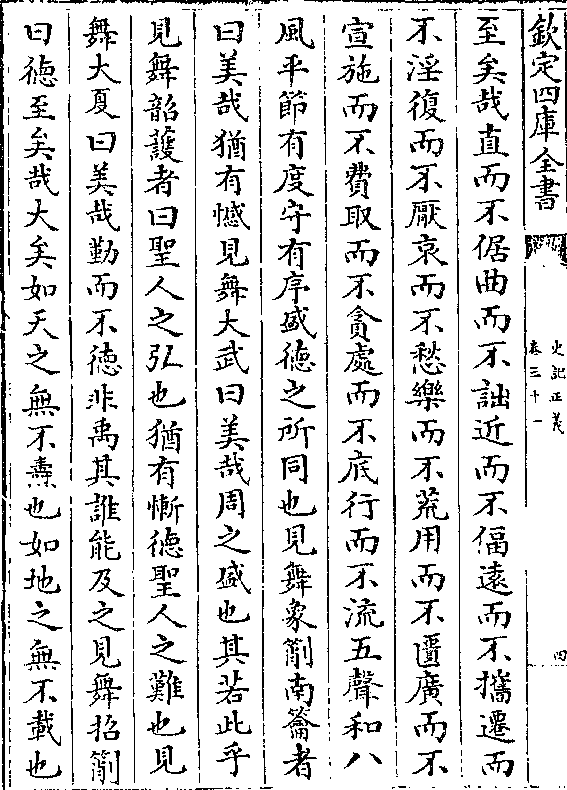 欽定四庫全書
史記正義
卷三十一
四
至矣哉直而不倨曲而不詘近而不偪遠而不攜遷而
不淫復而不厭哀而不愁樂而不荒用而不匱廣而不
宣施而不費取而不貪處而不底行而不流五聲和八
風平節有度守有序盛徳之所同也見舞象箾南籥者
曰美哉猶有憾見舞大武曰美哉周之盛也其若此乎
見舞韶護者曰聖人之弘也猶有慚徳聖人之難也見
舞大夏曰美哉勤而不徳非禹其誰能及之見舞招箾
曰徳至矣哉大矣如天之無不燾也如地之無不載也